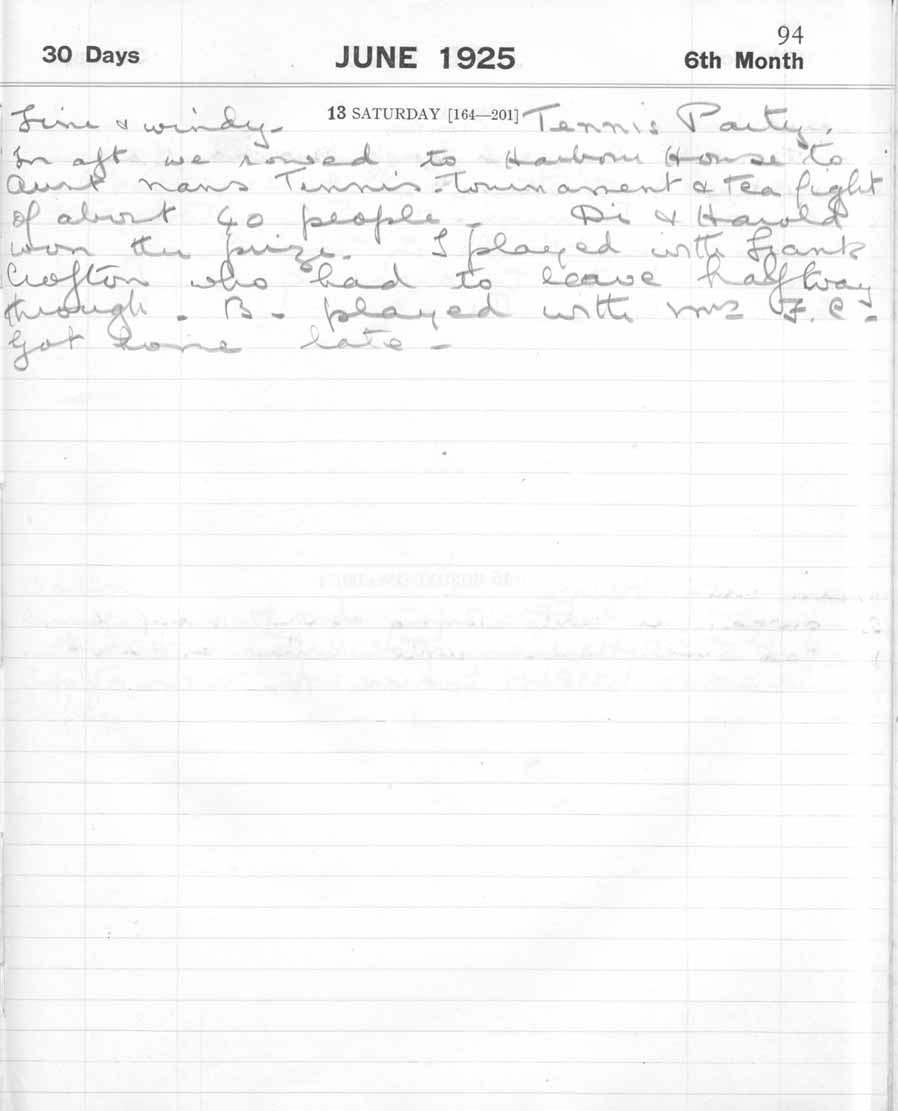 94
30 Days JUNE 1925 6th Month
Fine & windy- 13 SATURDAY [164—201] Tennis Party.
In aft we rowed to Harbour House to
Aunt Nans Tennis Tournament & tea fight
of about 40 people - Di & Harold
won the prize. I played with Frank
Crofton who had to leave halfway
through - B - played with Mrs F.C -
Got home late -